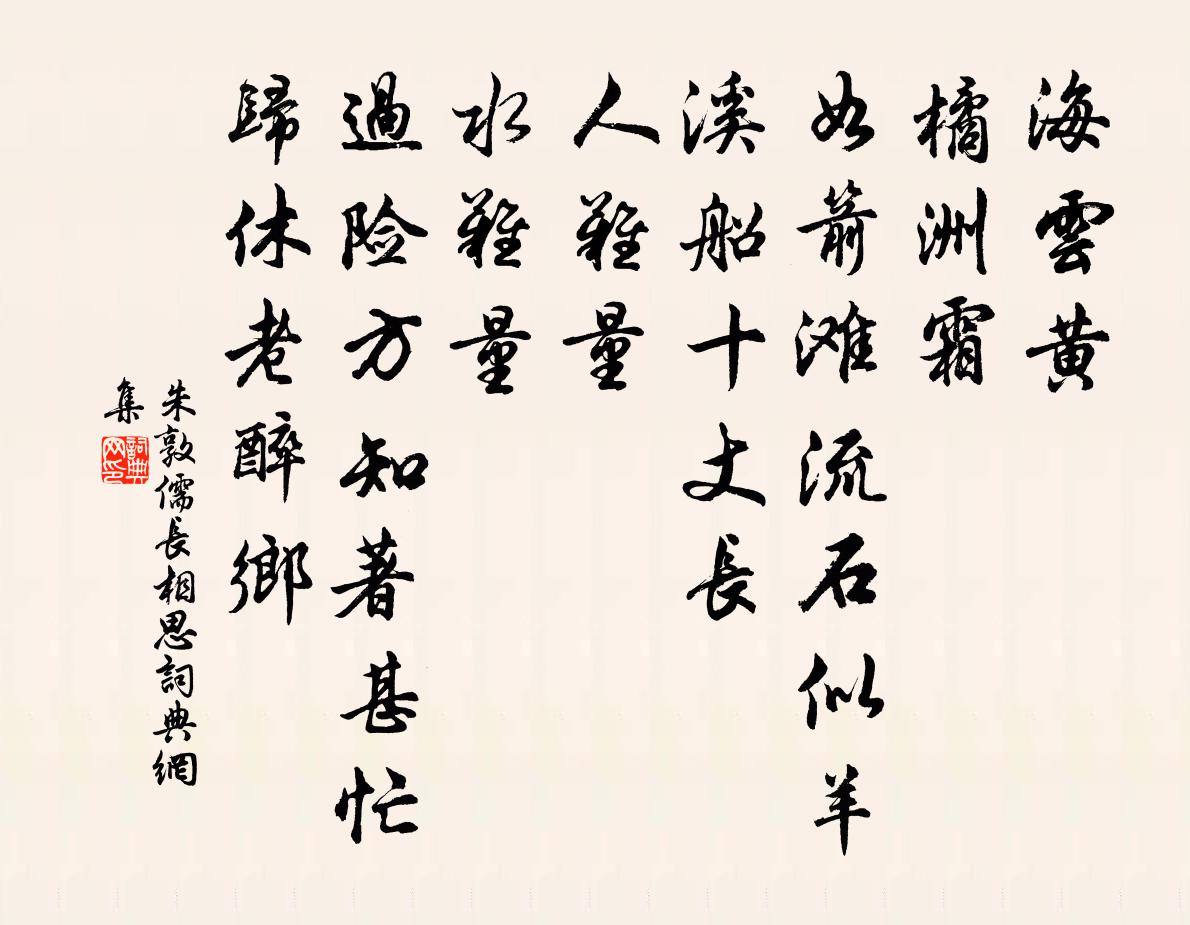 海雲黄
橘洲霜
如箭滩流石似羊
溪船十丈長
人難量
水難量
過險方知著甚忙
歸休老醉鄉
朱敦儒長相思詞典網
集
詞典網印